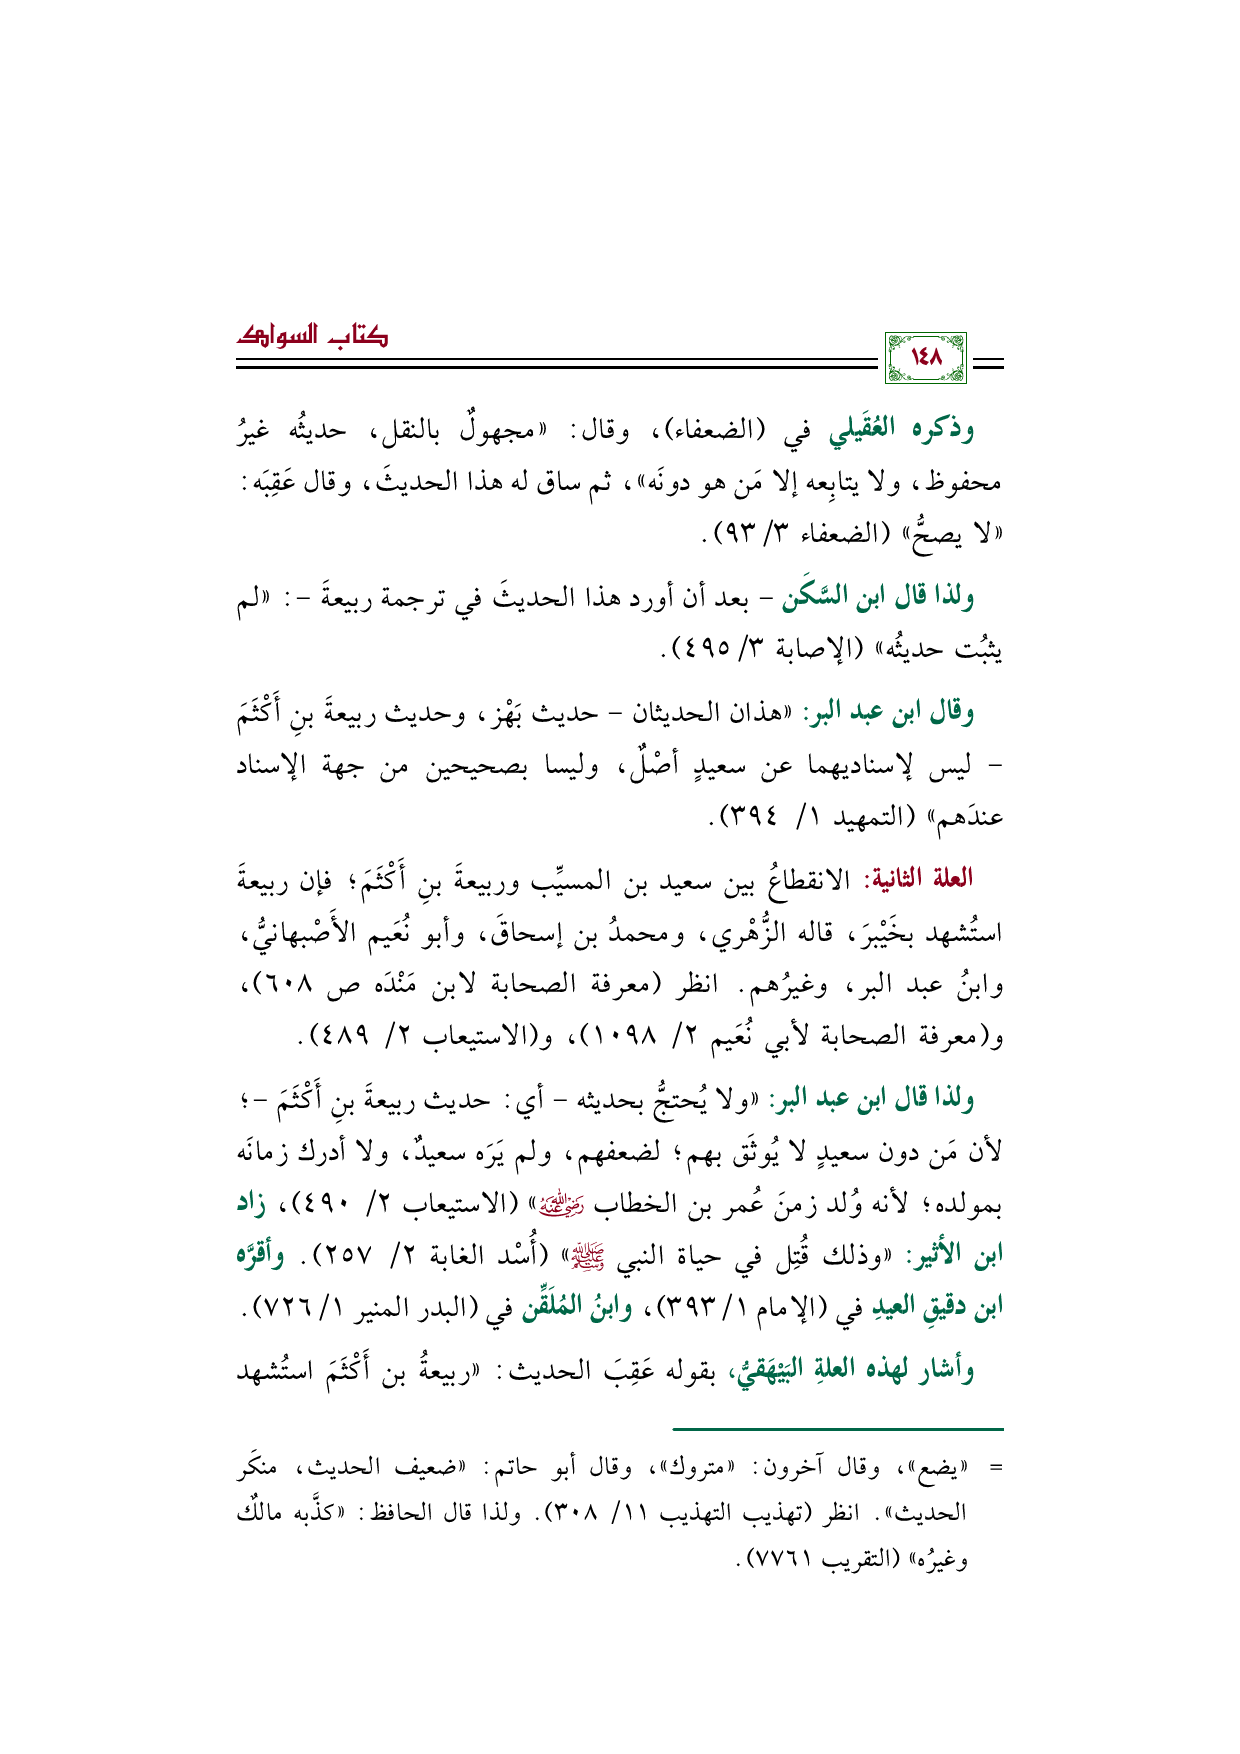 كتاب السواك
١٤٨
وذكره العُقَيلي في (الضعفاء)، وقال: «مجهولٌ بالنقل، حديثُه غيرُ
محفوظ، ولا يتابِعه إلا مَن هو دونَه»، ثم ساق له هذا الحديثَ، وقال عَقِبَه:
«لا يصحُّ» (الضعفاء ٣/ ٩٣).
ولذا قال ابن السَّكَن – بعد أن أورد هذا الحديثَ في ترجمة ربيعةَ –: «لم
يثبُت حديثُه» (الإصابة ٣/ ٤٩٥).
وقال ابن عبد البر: «هذان الحديثان – حديث بَهْز، وحديث ربيعةَ بنِ أَكْثَمَ
– ليس لإسناديهما عن سعيدٍ أصْلٌ، وليسا بصحيحين من جهة الإسناد
عندَهم» (التمهيد ١/ ٣٩٤).
العلة الثانية: الانقطاعُ بين سعيد بن المسيِّب وربيعةَ بنِ أَكْثَمَ؛ فإن ربيعةَ
استُشهد بخَيْبرَ، قاله الزُّهْري، ومحمدُ بن إسحاقَ، وأبو نُعَيم الأَصْبهانيُّ،
وابنُ عبد البر، وغيرُهم. انظر (معرفة الصحابة لابن مَنْدَه ص ٦٠٨)،
و(معرفة الصحابة لأبي نُعَيم ٢/ ١٠٩٨)، و(الاستيعاب ٢/ ٤٨٩).
ولذا قال ابن عبد البر: «ولا يُحتجُّ بحديثه – أي: حديث ربيعةَ بنِ أَكْثَمَ –؛
لأن مَن دون سعيدٍ لا يُوثَق بهم؛ لضعفهم، ولم يَرَه سعيدٌ، ولا أدرك زمانَه
بمولده؛ لأنه وُلد زمنَ عُمر بن الخطاب رضي الله عنه» (الاستيعاب ٢/ ٤٩٠)، زاد
ابن الأثير: «وذلك قُتِل في حياة النبي ﷺ» (أُسْد الغابة ٢/ ٢٥٧). وأقرَّه
ابن دقيقِ العيدِ في (الإمام ١/ ٣٩٣)، وابنُ المُلَقِّن في (البدر المنير ١/ ٧٢٦).
وأشار لهذه العلةِ البَيْهَقيُّ، بقوله عَقِبَ الحديث: «ربيعةُ بن أَكْثَمَ استُشهد
= «يضع»، وقال آخرون: «متروك»، وقال أبو حاتم: «ضعيف الحديث، منكَر
الحديث». انظر (تهذيب التهذيب ١١/ ٣٠٨). ولذا قال الحافظ: «كذَّبه مالكٌ
وغيرُه» (التقريب ٧٧٦١).